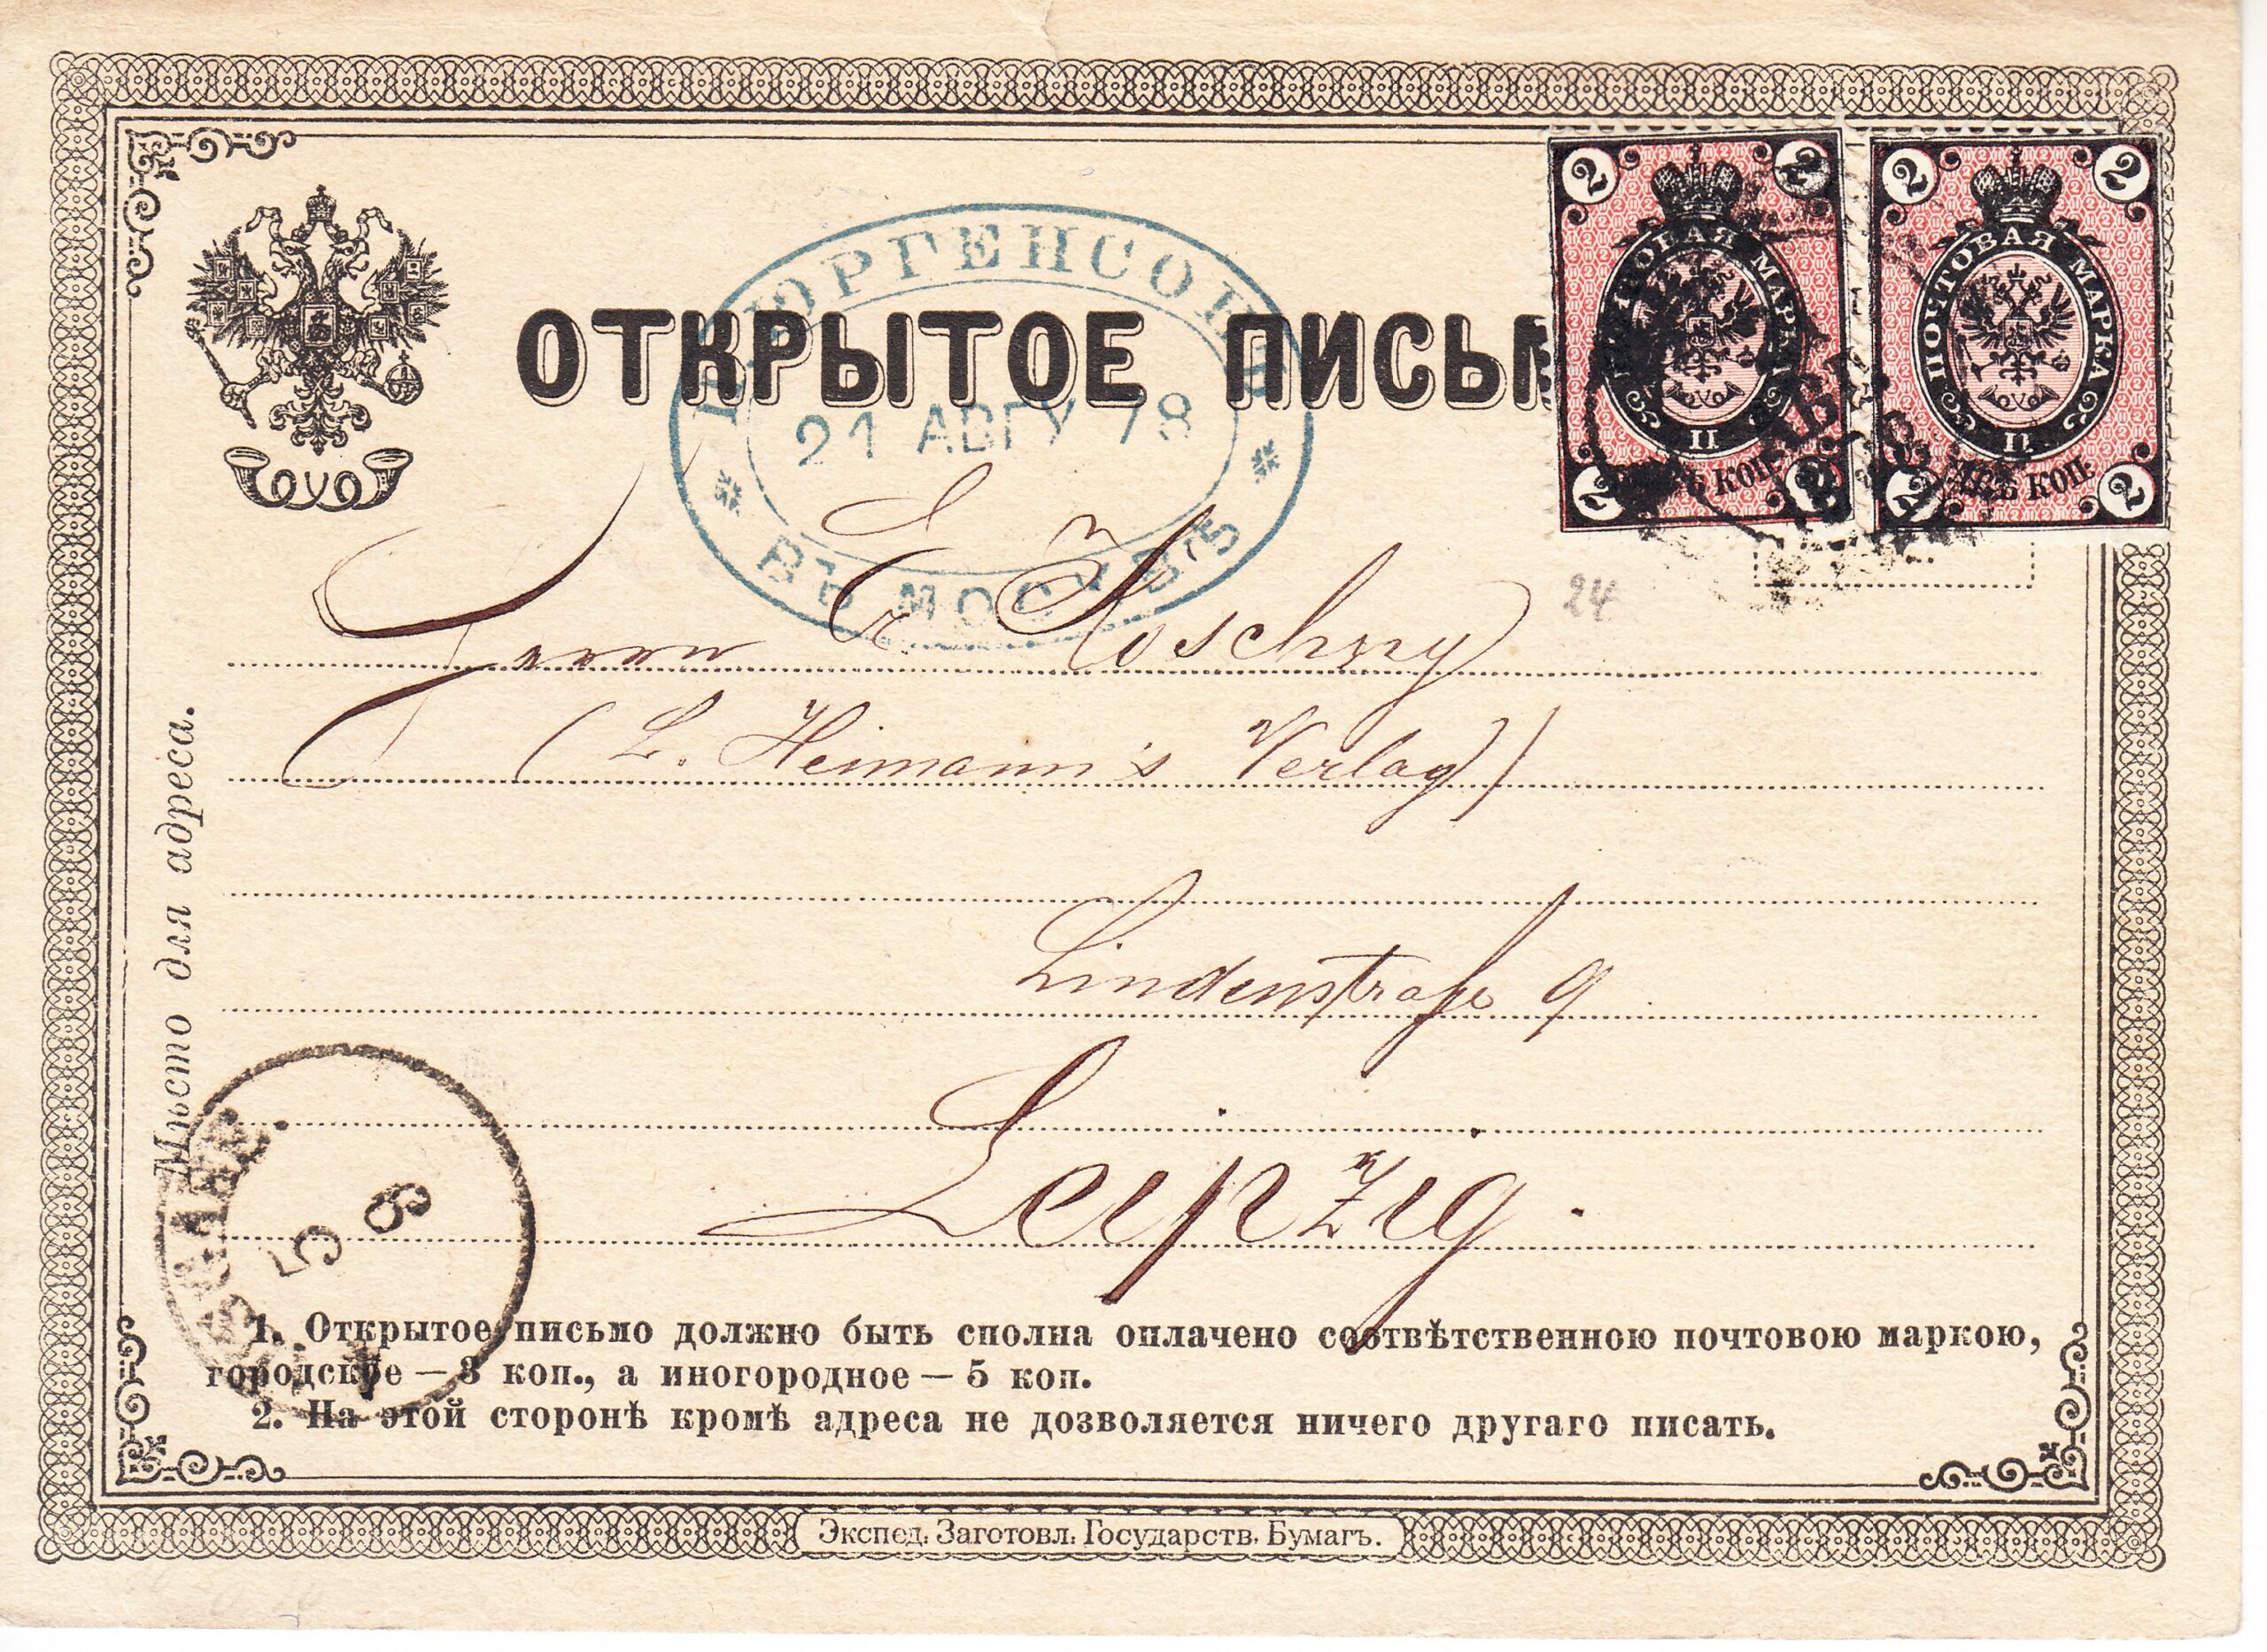 П. ЮРГЕНСОНЪ
ОТКРЫТОЕ ПИСЬМ
21 АВГУ 78
ВЪ МОСКВѢ
2 2
ПОЧТОВАЯ МАРКА
II
КОП.
2 2
2 2
ПОЧТОВАЯ МАРКА
II
ДВѢ КОП.
2 2
24
Herrn E. Koschny
(L. Heimann's Verlag)
Lindenstraße 9
Leipzig.
Мѣсто для адреса.
9
5
1. Открытое письмо должно быть сполна оплачено соотвѣтственною почтовою маркою,
городское — 3 коп., а иногородное — 5 коп.
2. На этой сторонѣ кромѣ адреса не дозволяется ничего другаго писать.
Экспед. Заготовл. Государств. Бумагъ.